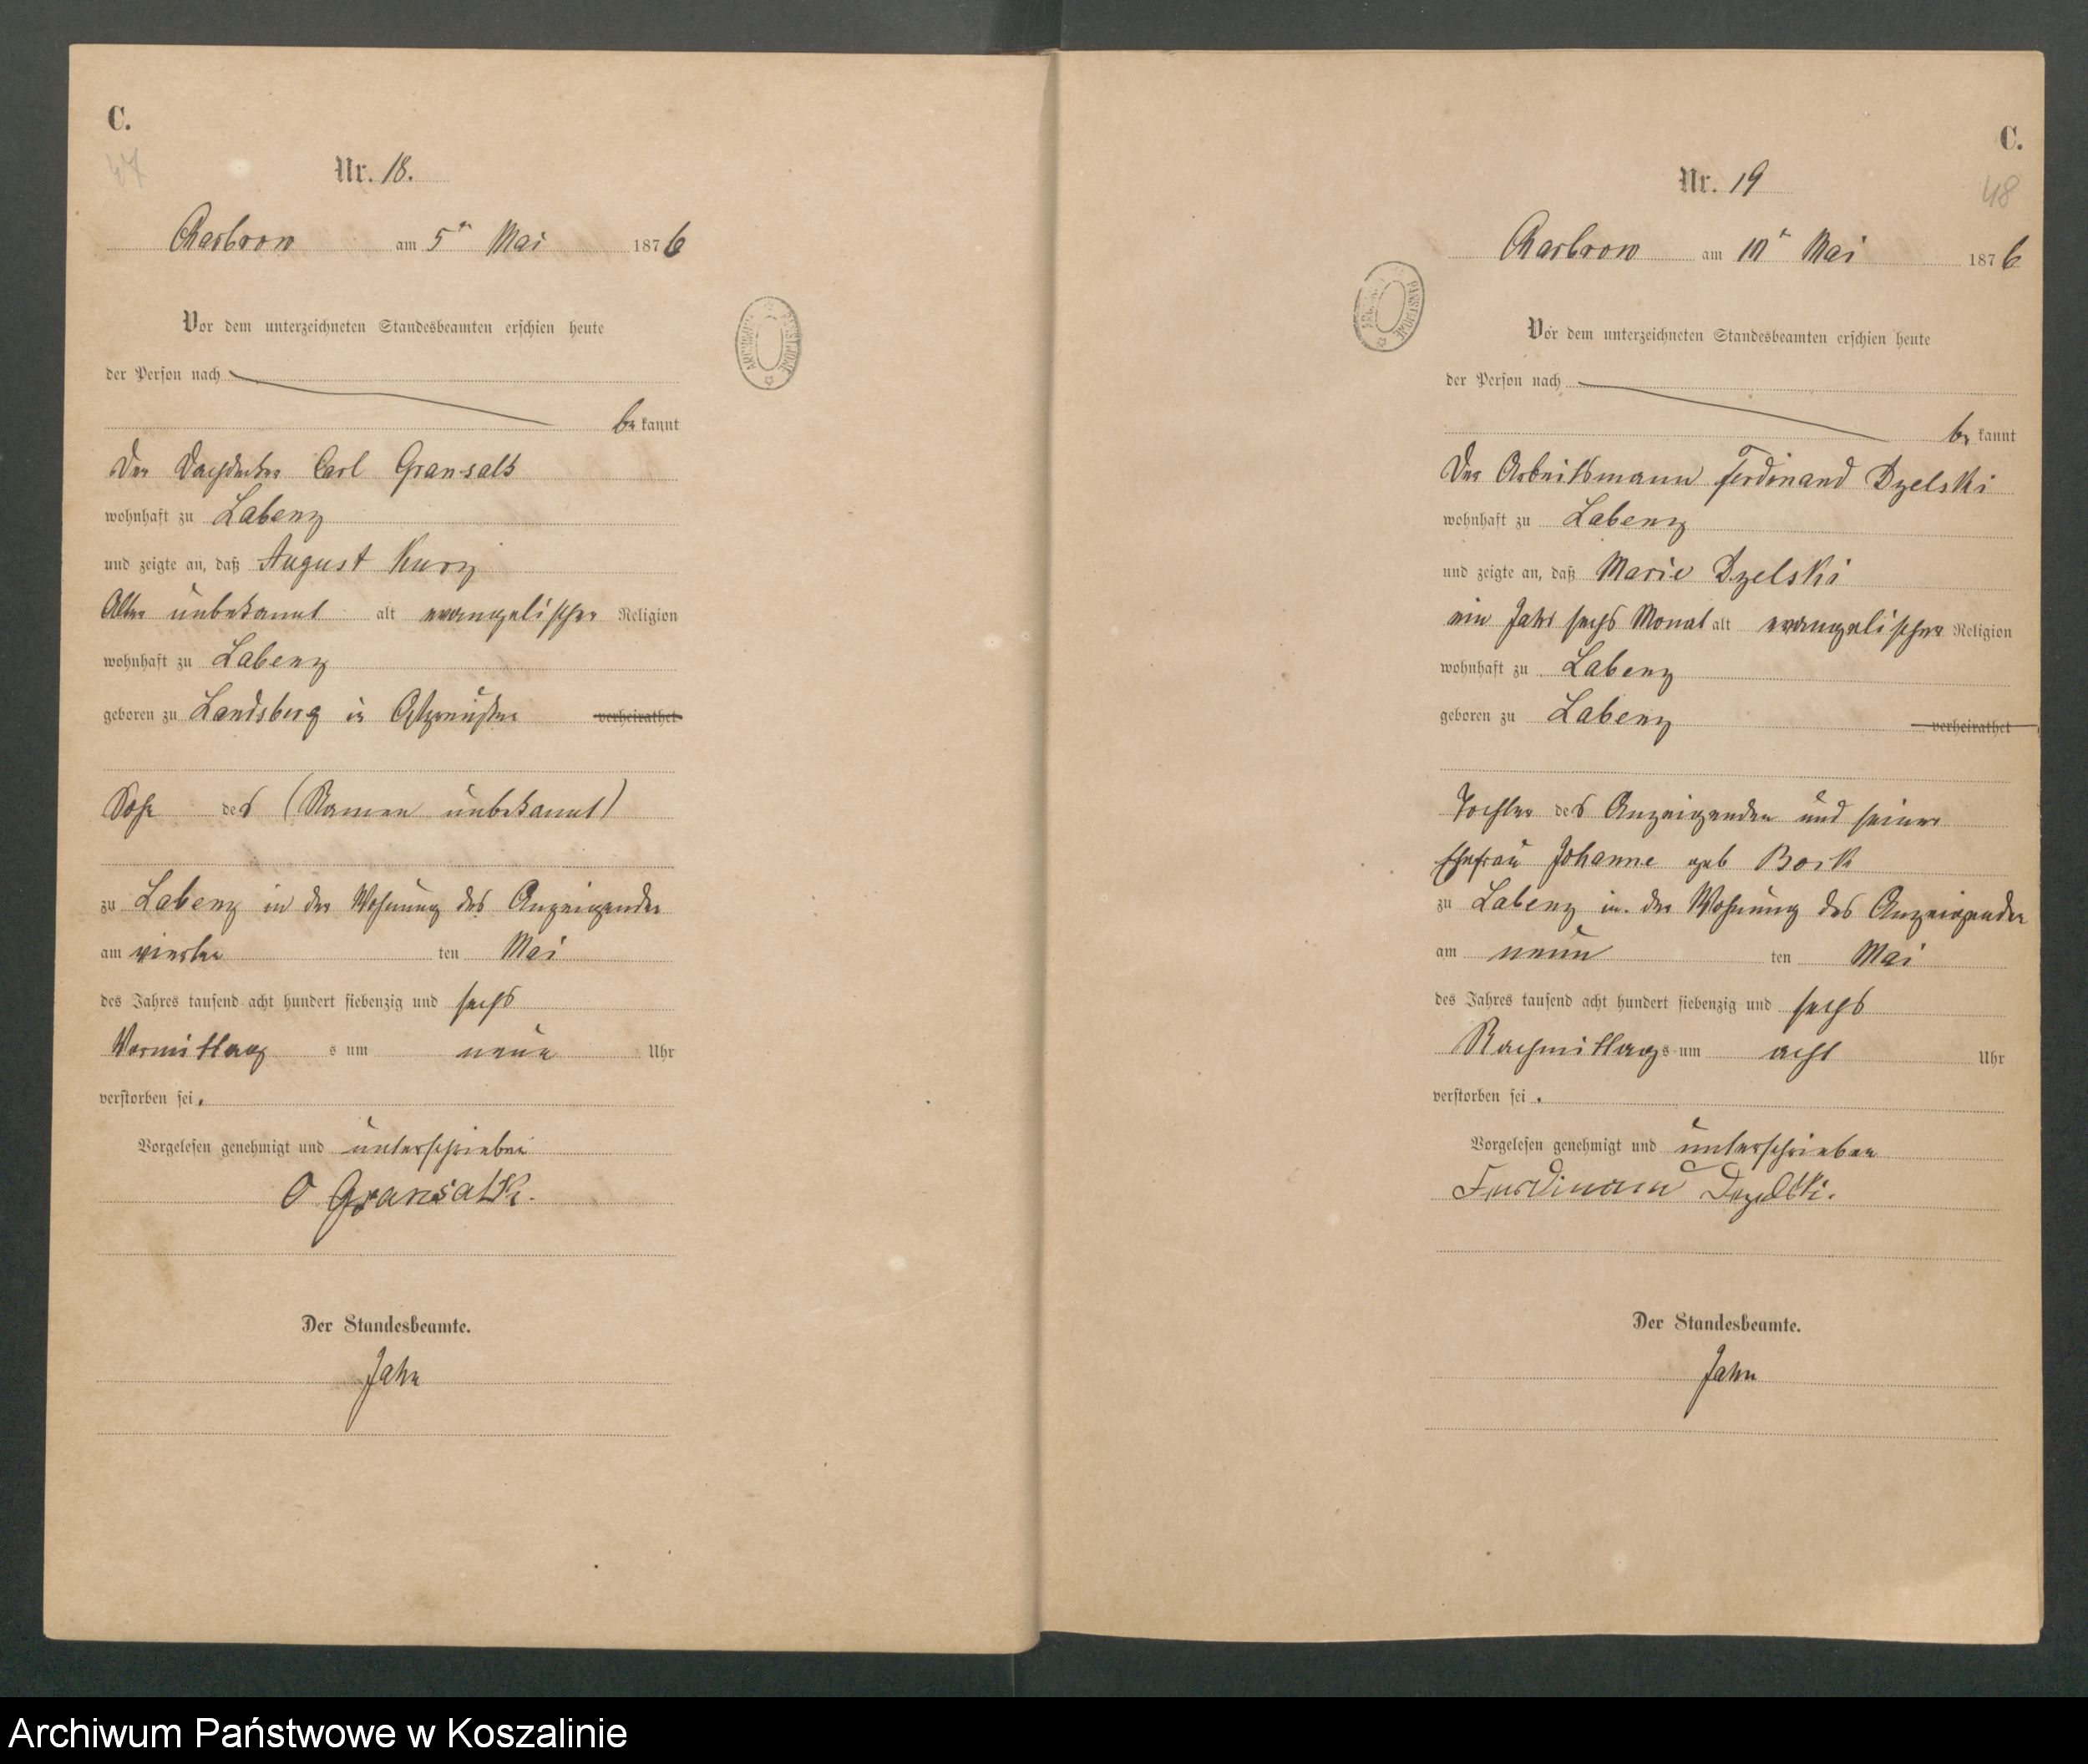 C.
47
Nr. 18.
Charbrow am 5n Mai 1876
Vor dem unterzeichneten Standesbeamten erschien heute
der Person nach
be kannt
Der Dachdecker Carl Gransalk
wohnhaft zu Labenz
und zeigte an, daß August Kurz
Alter unbekannt alt evangelischer Religion
wohnhaft zu Labenz
geboren zu Landsberg in Ostpreußen verheirathet
Sohn des (Namen unbekannt)
zu Labenz in der Wohnung des Anzeigenden
am vierten ten Mai
des Jahres tausend acht hundert siebenzig und sechs
Vormittag s um neun Uhr
verstorben sei.
Vorgelesen genehmigt und unterschrieben
C Gransalk.
Der Standesbeamte.
Jahn
ARCHIWUM PAŃSTWOWE
C.
48
Nr. 19
Charbrow am 10n Mai 1876
ARCHIWUM PAŃSTWOWE
Vor dem unterzeichneten Standesbeamten erschien heute
der Person nach
be kannt
Der Arbeitsmann Ferdinand Dzelski
wohnhaft zu Labenz
und zeigte an, daß Marie Dzelski
ein Jahr sechs Monat alt evangelischer Religion
wohnhaft zu Labenz
geboren zu Labenz verheirathet
Tochter des Anzeigenden und seiner
Ehefrau Johanne geb Bork
zu Labenz in der Wohnung des Anzeigenden
am neun ten Mai
des Jahres tausend acht hundert siebenzig und sechs
Nachmittags um acht Uhr
verstorben sei.
Vorgelesen genehmigt und unterschrieben
Ferdinand Dzelski.
Der Standesbeamte.
Jahn
Archiwum Państwowe w Koszalinie